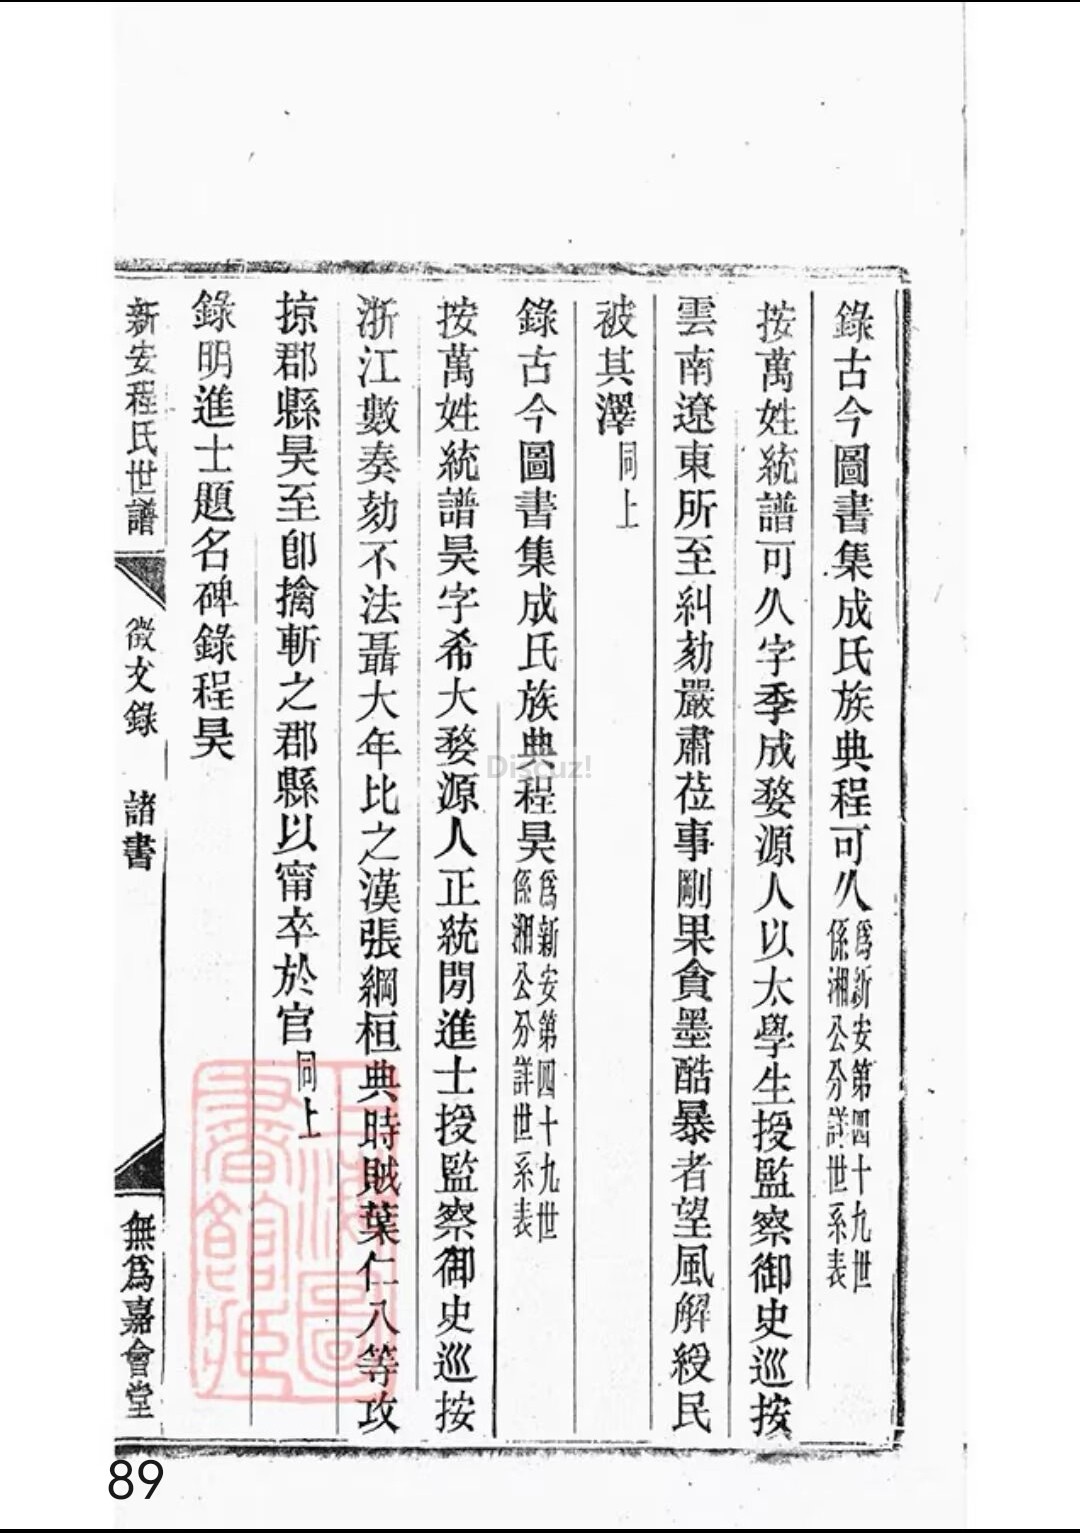 錄古今圖書集成氏族典程可久為新安第四十九世係湘公分詳世系表
按萬姓統譜可久字季成婺源人以太學生授監察御史巡按
雲南遼東所至糾劾嚴肅莅事剛果貪墨酷暴者望風解綬民
被其澤同上
錄古今圖書集成氏族典程昊為新安第四十九世係湘公分詳世系表
按萬姓統譜昊字希大婺源人正統閒進士授監察御史巡按
浙江數奏劾不法聶大年比之漢張綱桓典時賊葉仁八等攻
掠郡縣昊至卽擒斬之郡縣以甯卒於官同上
錄明進士題名碑錄程昊
新安程氏世譜 徵文錄 諸書 無為嘉會堂
上海圖書館藏
Discuz!
89